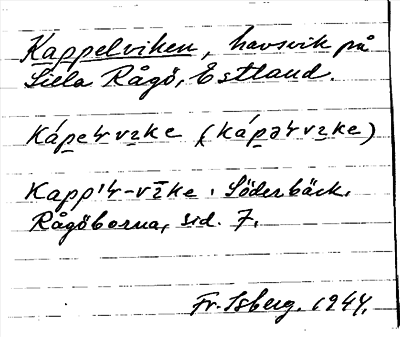 Kappelviken, havsvik på
Lilla Rågö, Estland.
Kápeꞁrvıke (kápaꞁrvıke)
Kapp'r-vīke. Söderbäck.
Rågöborna, sid. 7.
Fr. Isberg. 1944.